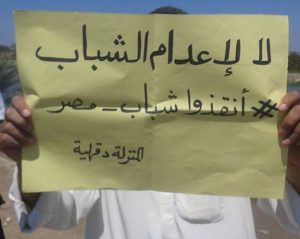 لا لإعدام الشباب
#أنقذوا شباب_مصر
المنزلة دقهلية